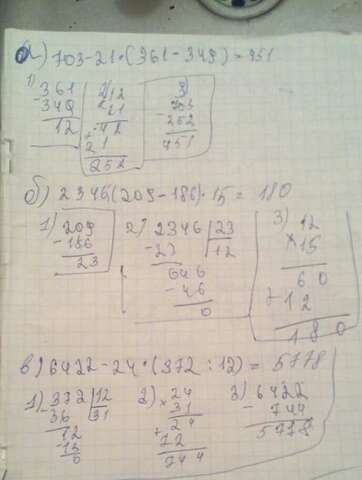 а) 703-21·(361-349)=451
1) 361 2) 12 3)
-349 ×21 703
12 42 -252
+ 21 451
252
б) 2346:(209-186)·15=180
1) 209 2) 2346 |23 3) 12
-186 -23 |12 ×15
23 646 60
-46 +12
0 180
в) 6422-24·(372:12)=5778
1) -372|12 2) ×24 3) 6422
36 |31 31 -744
12 24 5778
-12 +72
0 744